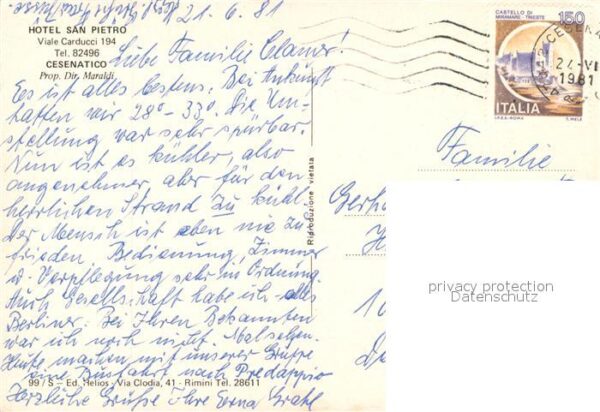 21.6.81
HOTEL SAN PIETRO
Viale Carducci 194
Tel. 82496
CESENATICO
Prop. Dir. Maraldi
Liebe Familie
Es ist alles bestens. Bei Ankunft
hatten wir 28°-33°. Die Um-
stellung war sehr spürbar.
Nun ist es kühler, also
angenehmer, aber für den
herrlichen Strand zu kühl.
Der Mensch ist eben nie zu-
frieden. Bedienung, Zimmer
u. Verpflegung sehr in Ordnung.
Auch Gesellschaft habe ich alles
Berliner. Bei Ihren Bekannten
war ich noch nicht. Mal sehen.
Heute machen mit unserer Gruppe
eine Busfahrt nach Predappio
Herzliche Grüße Ihre Erna
99/S - Ed. Helios - Via Clodia, 41 - Rimini Tel. 28611
Riproduzione vietata
CASTELLO DI
MIRAMARE - TRIESTE
150
ITALIA
I.P.Z.S.-ROMA E. MELE
24-VI
1981
Familie
Gerh
privacy protection
Datenschutz